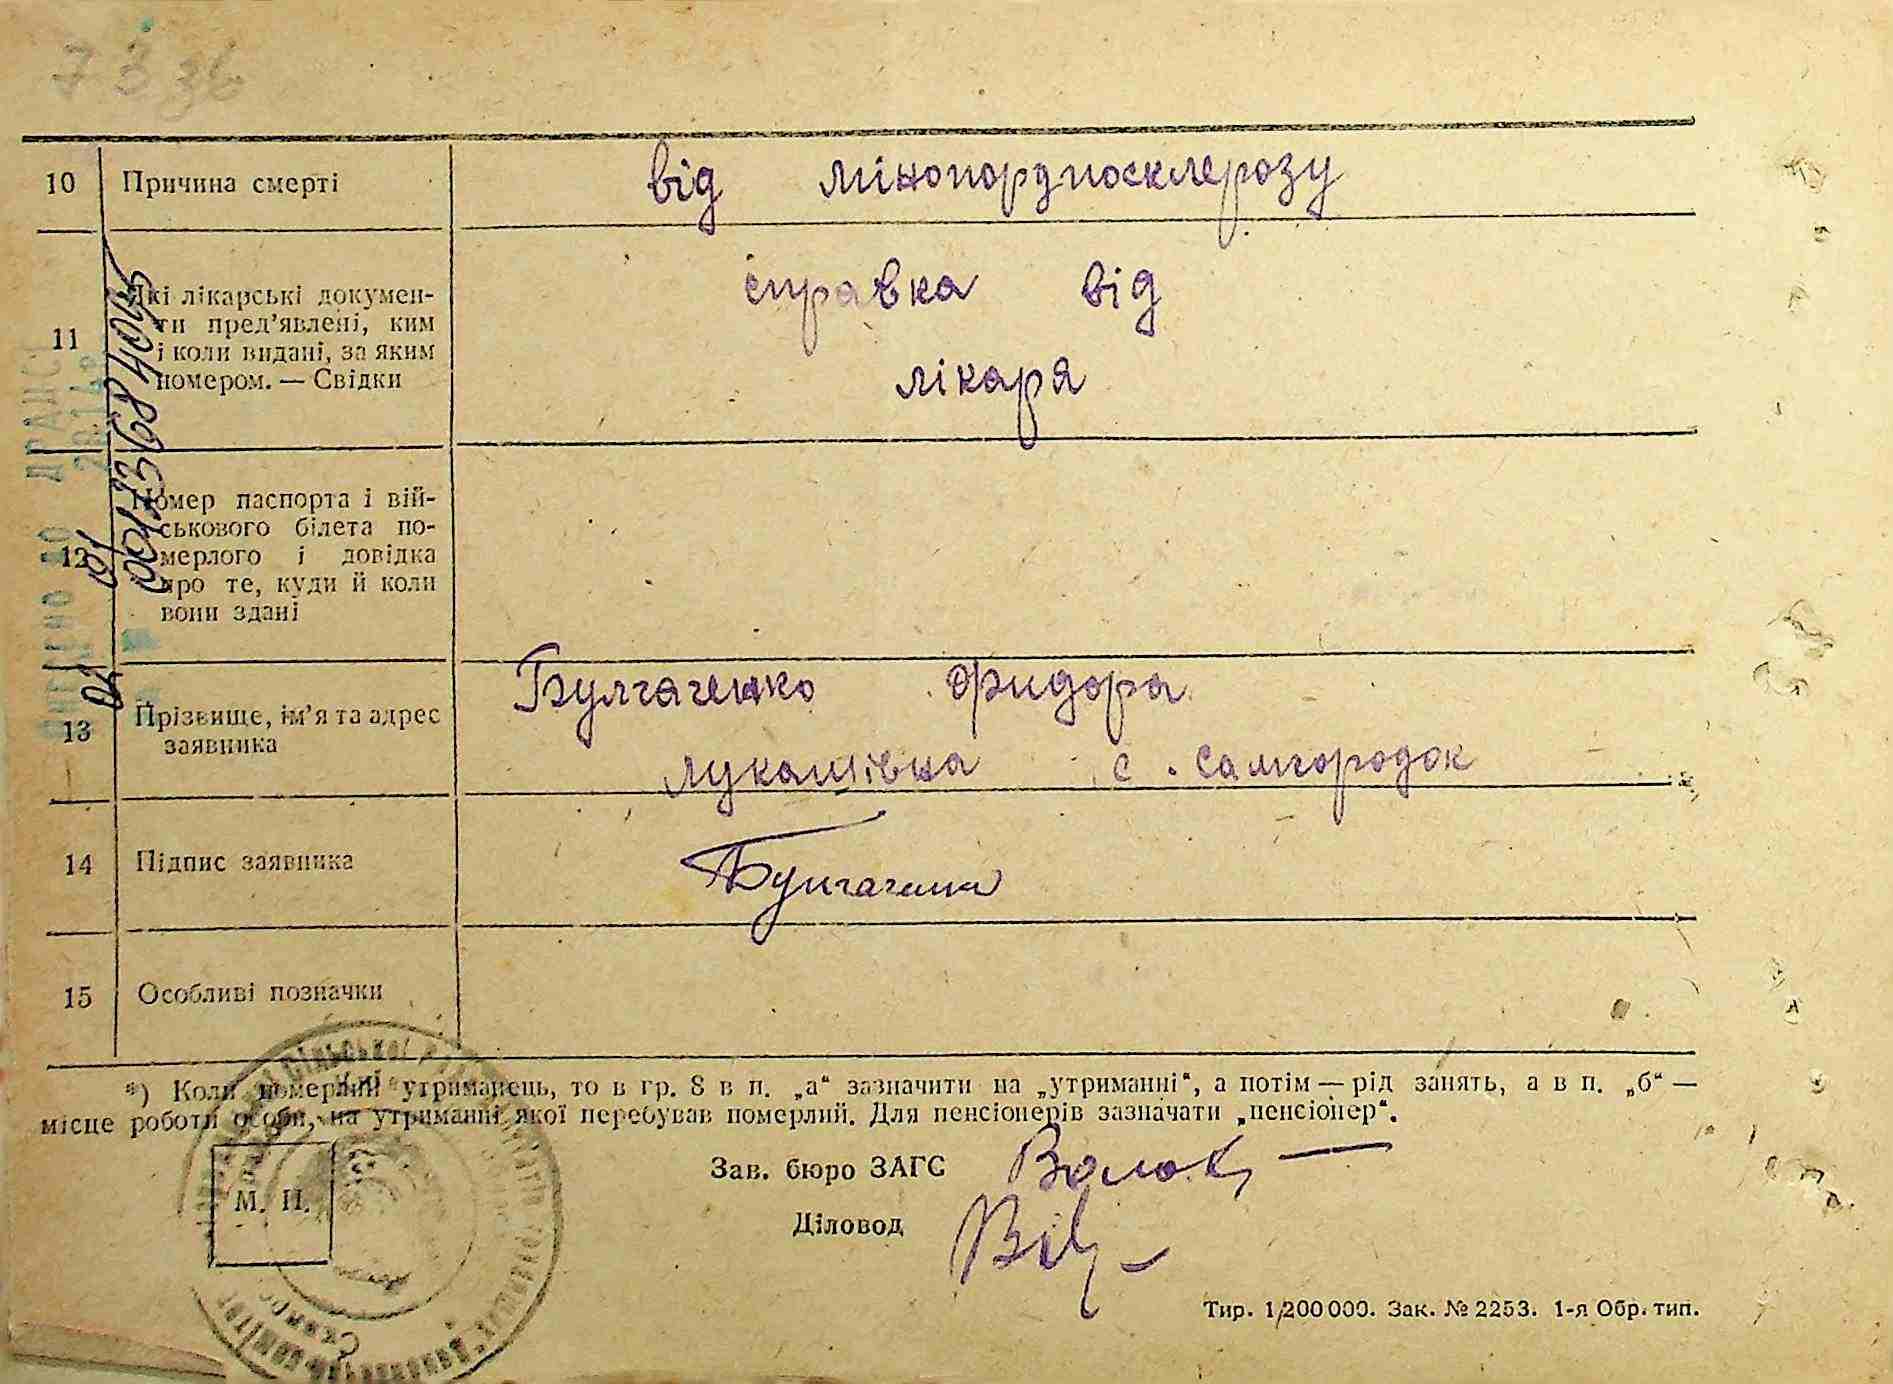 7 3 36
10 Причина смерті від мінопордиосклерозу
11 Які лікарські докумен-
ти пред'явлені, ким
і коли видані, за яким
номером. — Свідки
справка від
лікаря
12 Номер паспорта і вій-
ськового білета по-
мерлого і довідка
про те, куди й коли
вони здані
13 Прізвище, ім'я та адрес
заявника
Булгаченко Фридора
лукашівна с. Самгородок
14 Підпис заявника Булгаченко
15 Особливі позначки
*) Коли померлий утриманець, то в гр. 8 в п. „а“ зазначити на „утриманні“, а потім — рід занять, а в п. „б“ —
місце роботи особи, на утриманні якої перебував померлий. Для пенсіонерів зазначати „пенсіонер“.
Зав. бюро ЗАГС
Діловод
М. П.
Тир. 1,200 000. Зак. № 2253. 1-я Обр. тип.